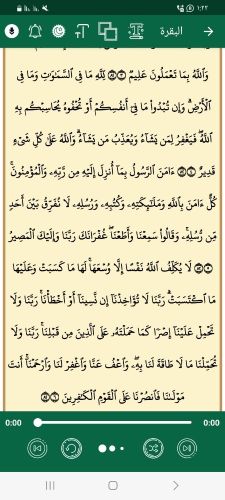 ١:٢٢
البقرة
وَٱللَّهُ بِمَا تَعْمَلُونَ عَلِيمٌ ﴿٢٨٣﴾ لِّلَّهِ مَا فِى ٱلسَّمَٰوَٰتِ وَمَا فِى
ٱلْأَرْضِ ۗ وَإِن تُبْدُوا۟ مَا فِىٓ أَنفُسِكُمْ أَوْ تُخْفُوهُ يُحَاسِبْكُم بِهِ
ٱللَّهُ ۖ فَيَغْفِرُ لِمَن يَشَآءُ وَيُعَذِّبُ مَن يَشَآءُ ۗ وَٱللَّهُ عَلَىٰ كُلِّ شَىْءٍ
قَدِيرٌ ﴿٢٨٤﴾ ءَامَنَ ٱلرَّسُولُ بِمَآ أُنزِلَ إِلَيْهِ مِن رَّبِّهِۦ وَٱلْمُؤْمِنُونَ ۚ
كُلٌّ ءَامَنَ بِٱللَّهِ وَمَلَٰٓئِكَتِهِۦ وَكُتُبِهِۦ وَرُسُلِهِۦ لَا نُفَرِّقُ بَيْنَ أَحَدٍ
مِّن رُّسُلِهِۦ ۚ وَقَالُوا۟ سَمِعْنَا وَأَطَعْنَا ۖ غُفْرَانَكَ رَبَّنَا وَإِلَيْكَ ٱلْمَصِيرُ
﴿٢٨٥﴾ لَا يُكَلِّفُ ٱللَّهُ نَفْسًا إِلَّا وُسْعَهَا ۚ لَهَا مَا كَسَبَتْ وَعَلَيْهَا
مَا ٱكْتَسَبَتْ ۗ رَبَّنَا لَا تُؤَاخِذْنَآ إِن نَّسِينَآ أَوْ أَخْطَأْنَا ۚ رَبَّنَا وَلَا
تَحْمِلْ عَلَيْنَآ إِصْرًا كَمَا حَمَلْتَهُۥ عَلَى ٱلَّذِينَ مِن قَبْلِنَا ۚ رَبَّنَا وَلَا
تُحَمِّلْنَا مَا لَا طَاقَةَ لَنَا بِهِۦ ۖ وَٱعْفُ عَنَّا وَٱغْفِرْ لَنَا وَٱرْحَمْنَآ ۚ أَنتَ
مَوْلَىٰنَا فَٱنصُرْنَا عَلَى ٱلْقَوْمِ ٱلْكَٰفِرِينَ ﴿٢٨٦﴾
0:00 0:00